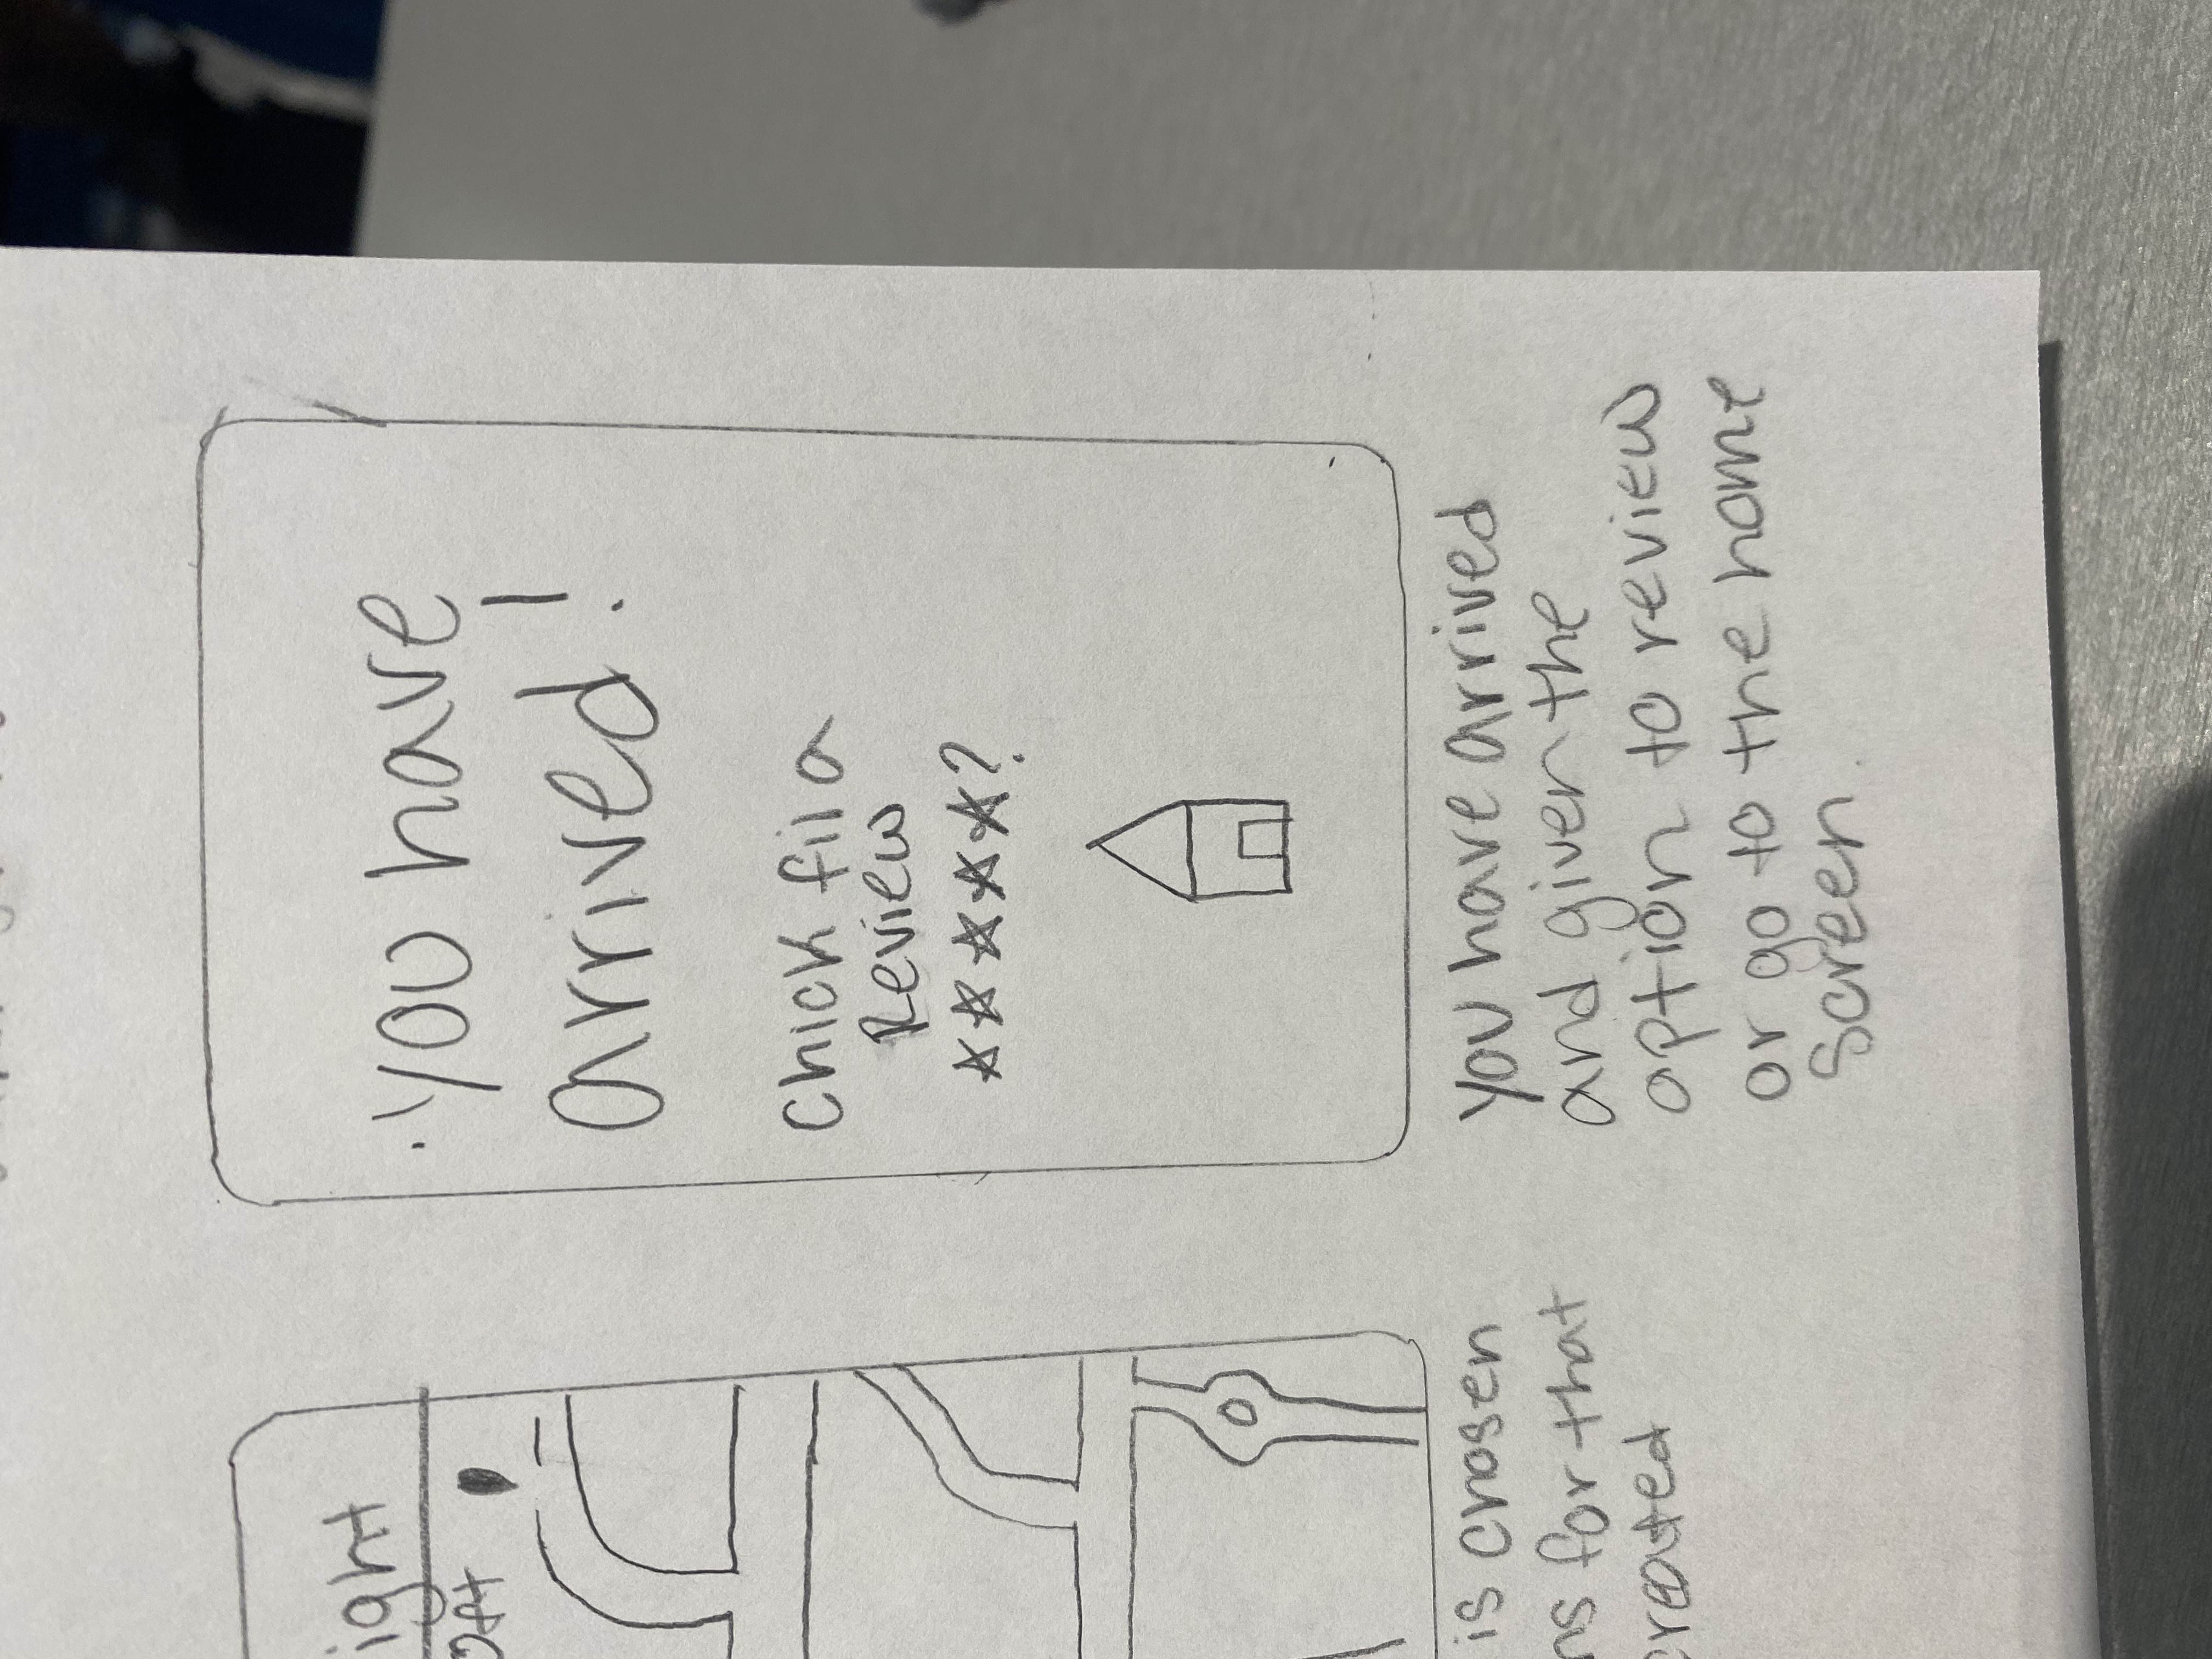 ight
0ft
is chosen
ns for that
created
You have
arrived!
Chick fil a
Review
★★★★★?
you have arrived
and given the
option to review
or go to the home
Screen.